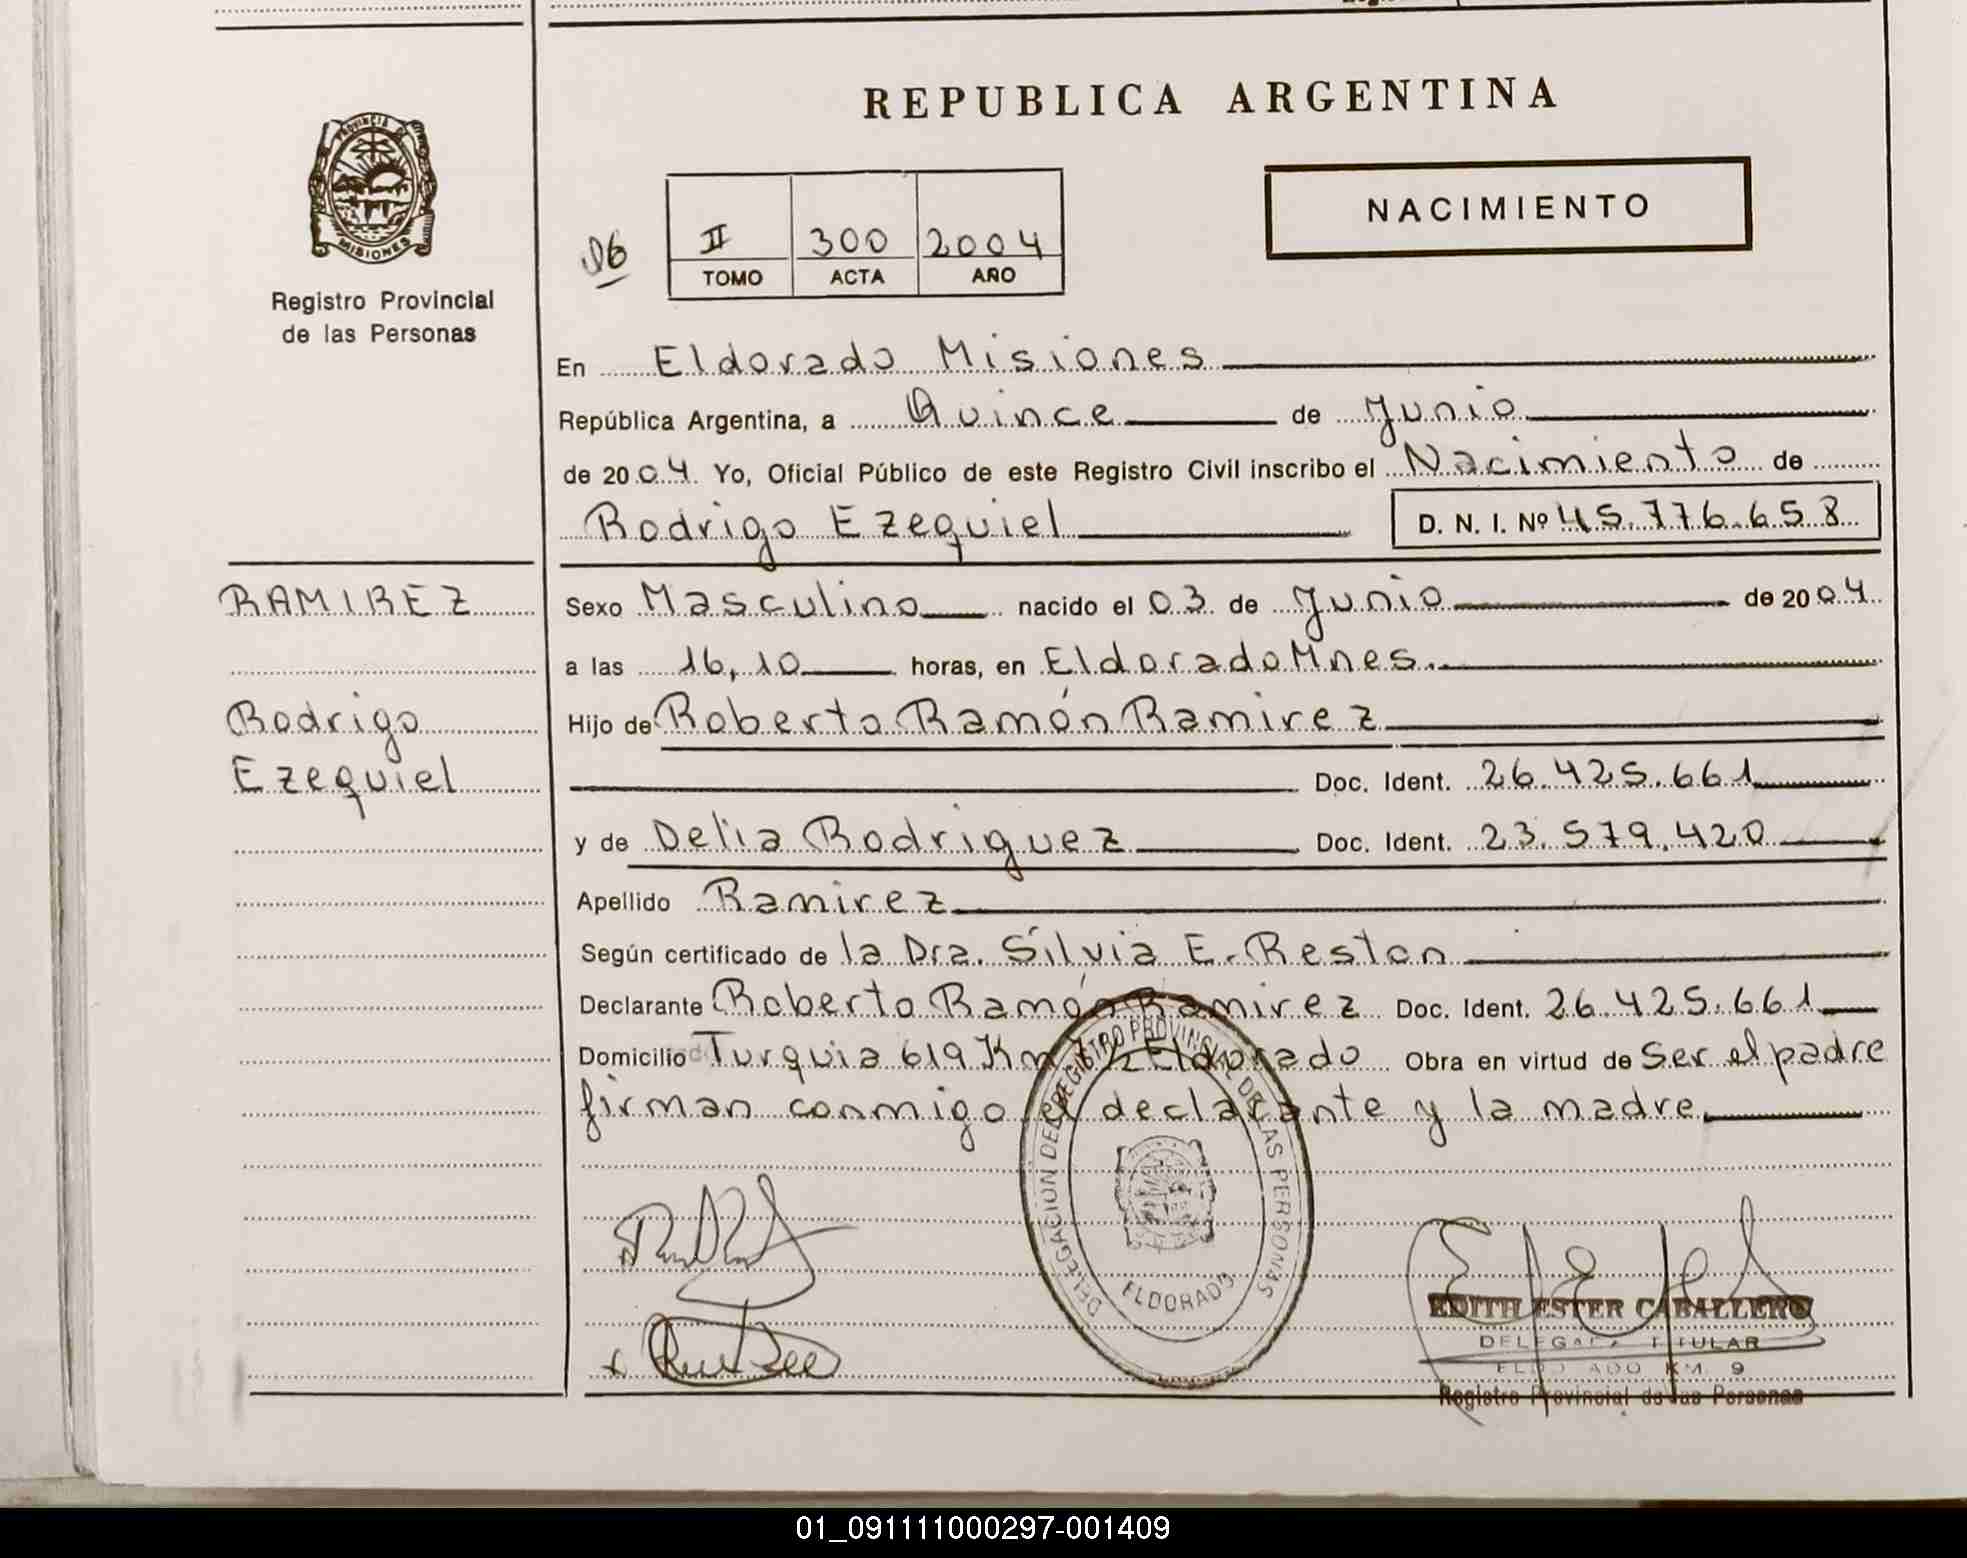 REPUBLICA ARGENTINA
NACIMIENTO
PROVINCIA DE
MISIONES
Registro Provincial
de las Personas
II 300 2004
TOMO ACTA AÑO
En Eldorado Misiones
República Argentina, a Quince de Junio
de 2004 Yo, Oficial Público de este Registro Civil inscribo el Nacimiento de
Rodrigo Ezequiel D. N. I. Nº 45.776.658
RAMIREZ
Rodrigo
Ezequiel
Sexo Masculino nacido el 03 de Junio de 2004
a las 16,10 horas, en Eldorado Mnes.
Hijo de Roberto Ramón Ramirez
Doc. Ident. 26.425.661
y de Delia Rodriguez Doc. Ident. 23.579.420
Apellido Ramirez
Según certificado de la Dra. Silvia E. Reston
Declarante Roberto Ramón Ramirez Doc. Ident. 26.425.661
Domicilio Turquia 619 Km Eldorado Obra en virtud de Ser el padre
firman conmigo el declarante y la madre
DELEGACION DEL REGISTRO PROVINCIAL DE LAS PERSONAS
ELDORADO
EDITH ESTER CABALLERO
DELEGADA TITULAR
ELDORADO KM. 9
Registro Provincial de las Personas
01_091111000297-001409